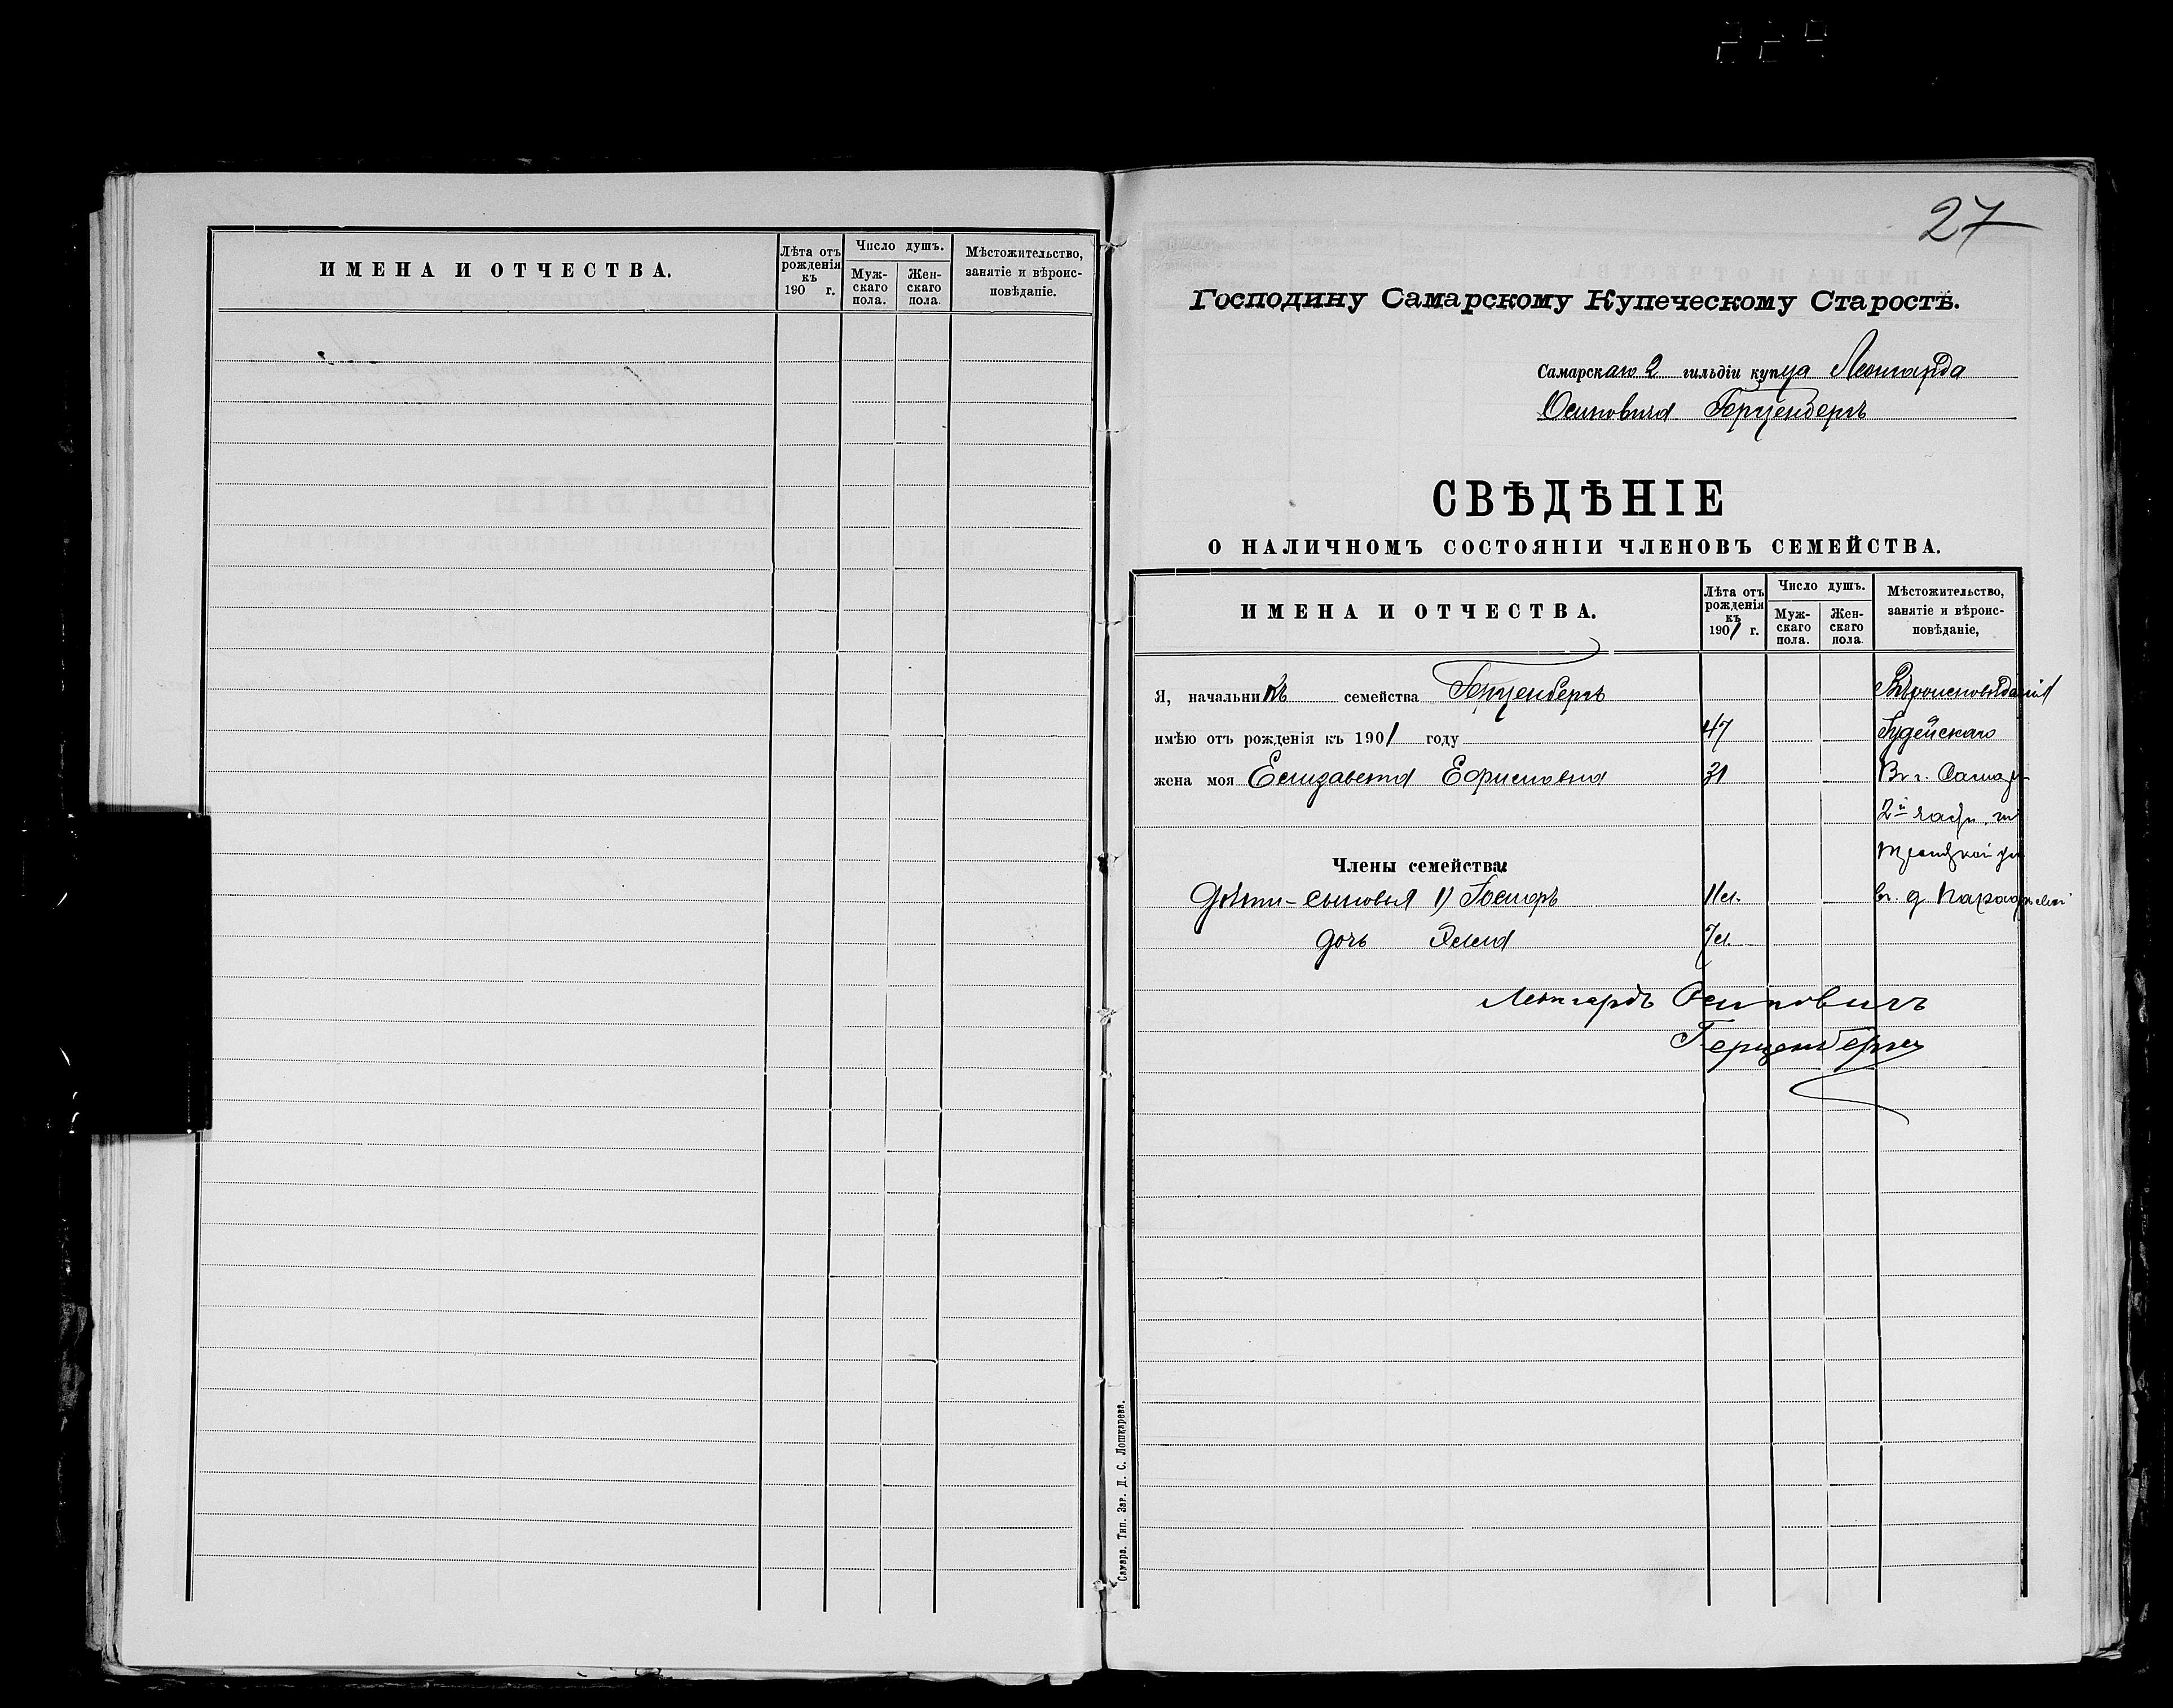 224
ИМЕНА И ОТЧЕСТВА.
Лѣта отъ рожденія къ 190 г.
Число душъ.
Мужскаго пола.
Женскаго пола.
Мѣстожительство, занятіе и вѣроисповѣданіе.
27
Господину Самарскому Купеческому Старостѣ.
Самарскаго 2 гильдіи купца Леонгарда
Осиповича Герценбергъ
СВѢДѢНІЕ
О НАЛИЧНОМЪ СОСТОЯНІИ ЧЛЕНОВЪ СЕМЕЙСТВА.
ИМЕНА И ОТЧЕСТВА.
Лѣта отъ рожденія къ 1901 г.
Число душъ.
Мужскаго пола.
Женскаго пола.
Мѣстожительство, занятіе и вѣроисповѣданіе,
Я, начальникъ семейства Герценбергъ Вѣроисповѣданія
имѣю отъ рожденія къ 1901 году 47 Іудейскаго
жена моя Елизавета 31 Въ г. Самарѣ
2й части, по
Троицкой ул
Члены семейства:
Дѣти-сыновья 1) 11 л. въ д
дочь 7 л.
Леонгардъ Осиповичъ
Герценбергъ
Самара. Тип. Зав. Д. С. Лошкарева.